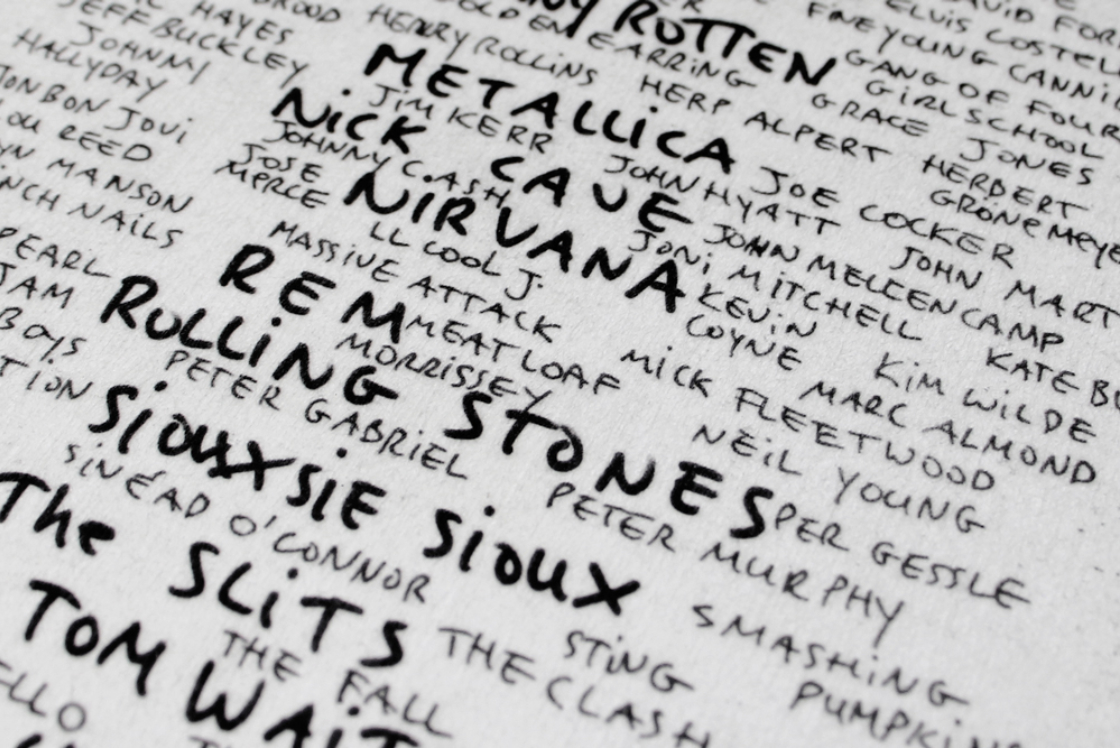 HAYES
JEFF BUCKLEY
JOHNNY
HALLYDAY
JON BON JOVI
LOU REED
MANSON
NAILS
PEARL
JAM
BOYS
ROTTEN
HENRY ROLLINS
EARRING
METALLICA
JIM KERR
HERP ALPERT
GRACE JONES
FINE YOUNG
GANG OF FOUR
GIRLSCHOOL
NiCK CAVE
JOHNNY CASH
JOHN HYATT
JOE COCKER
HERBERT
GRÖNEMEYE
JOSE
MERCE
NiRVANA
LL COOL J.
JONi MiTCHELL
JOHN MELLENCAMP
JOHN
MASSiVE ATTACK
KEViN
COYNE
KiM WiLDE
KATE
REM
MEAT LOAF
MiCK FLEETWOOD
MARC ALMOND
MORRiSSEY
ROLLiNG STONES
NEiL YOUNG
PETER GABRiEL
PETER MURPHY
PER GESSLE
SiOUXSiE SiOUX
SiNÉAD O'CONNOR
SMASHiNG
The SLiTS
STiNG
THE CLASH
THE FALL
TOM